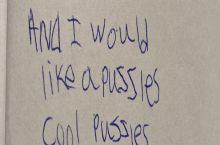 And I would
like a pussles
cool pussles